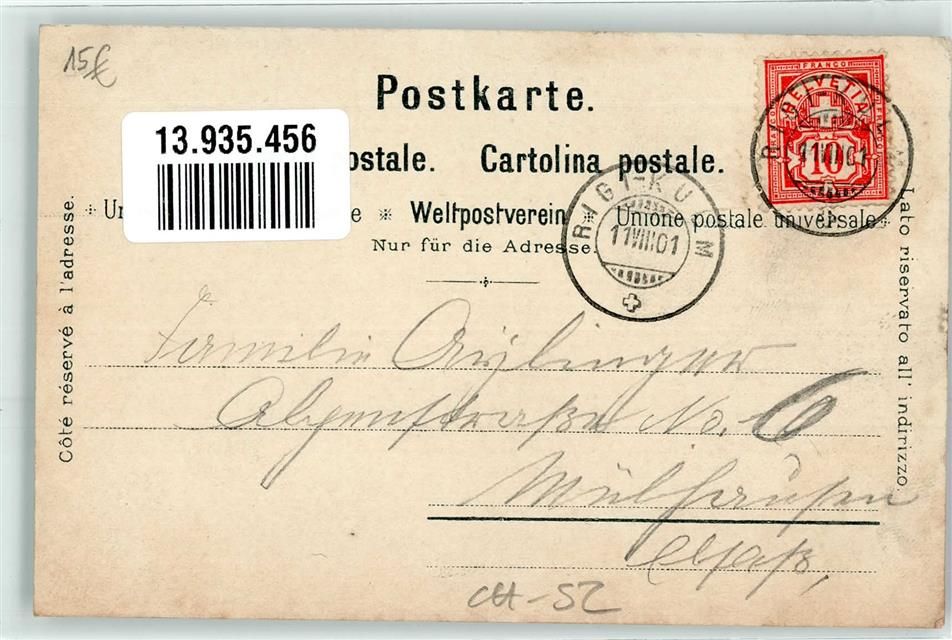 15€
Postkarte.
13.935.456
ostale. Cartolina postale.
Un e * Weltpostverein * Unione postale universale
Nur für die Adresse.
Côté réservé à l'adresse.
Lato riservato all' indirizzo.
FRANCO
HELVETIA
10
11VIII01
RIGI-KULM
11VIII01
Familie
Alpenstrasse No. 6
Mülhausen
Elsaß,
CH-SZ